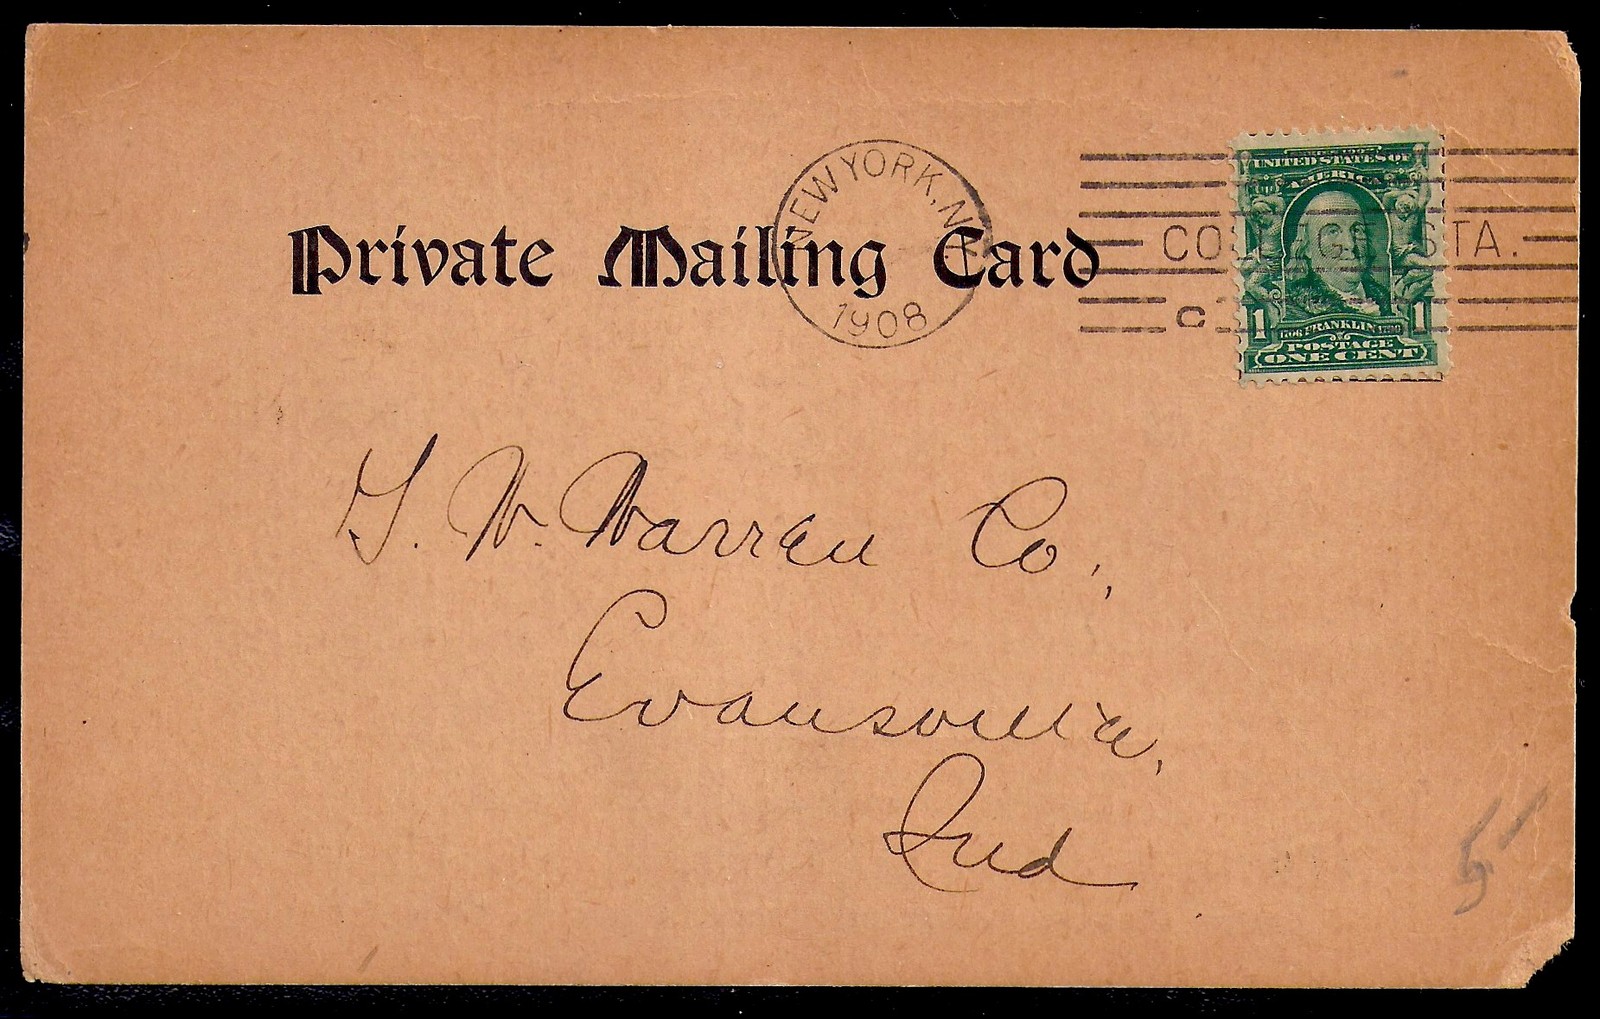 NEW YORK, N.Y.
1908
Private Mailing Card
STA.
C
UNITED STATES OF
AMERICA
1 1706 FRANKLIN 1790 1
POSTAGE
ONE CENT
T. W. Warren Co.,
Evansville,
Ind
5